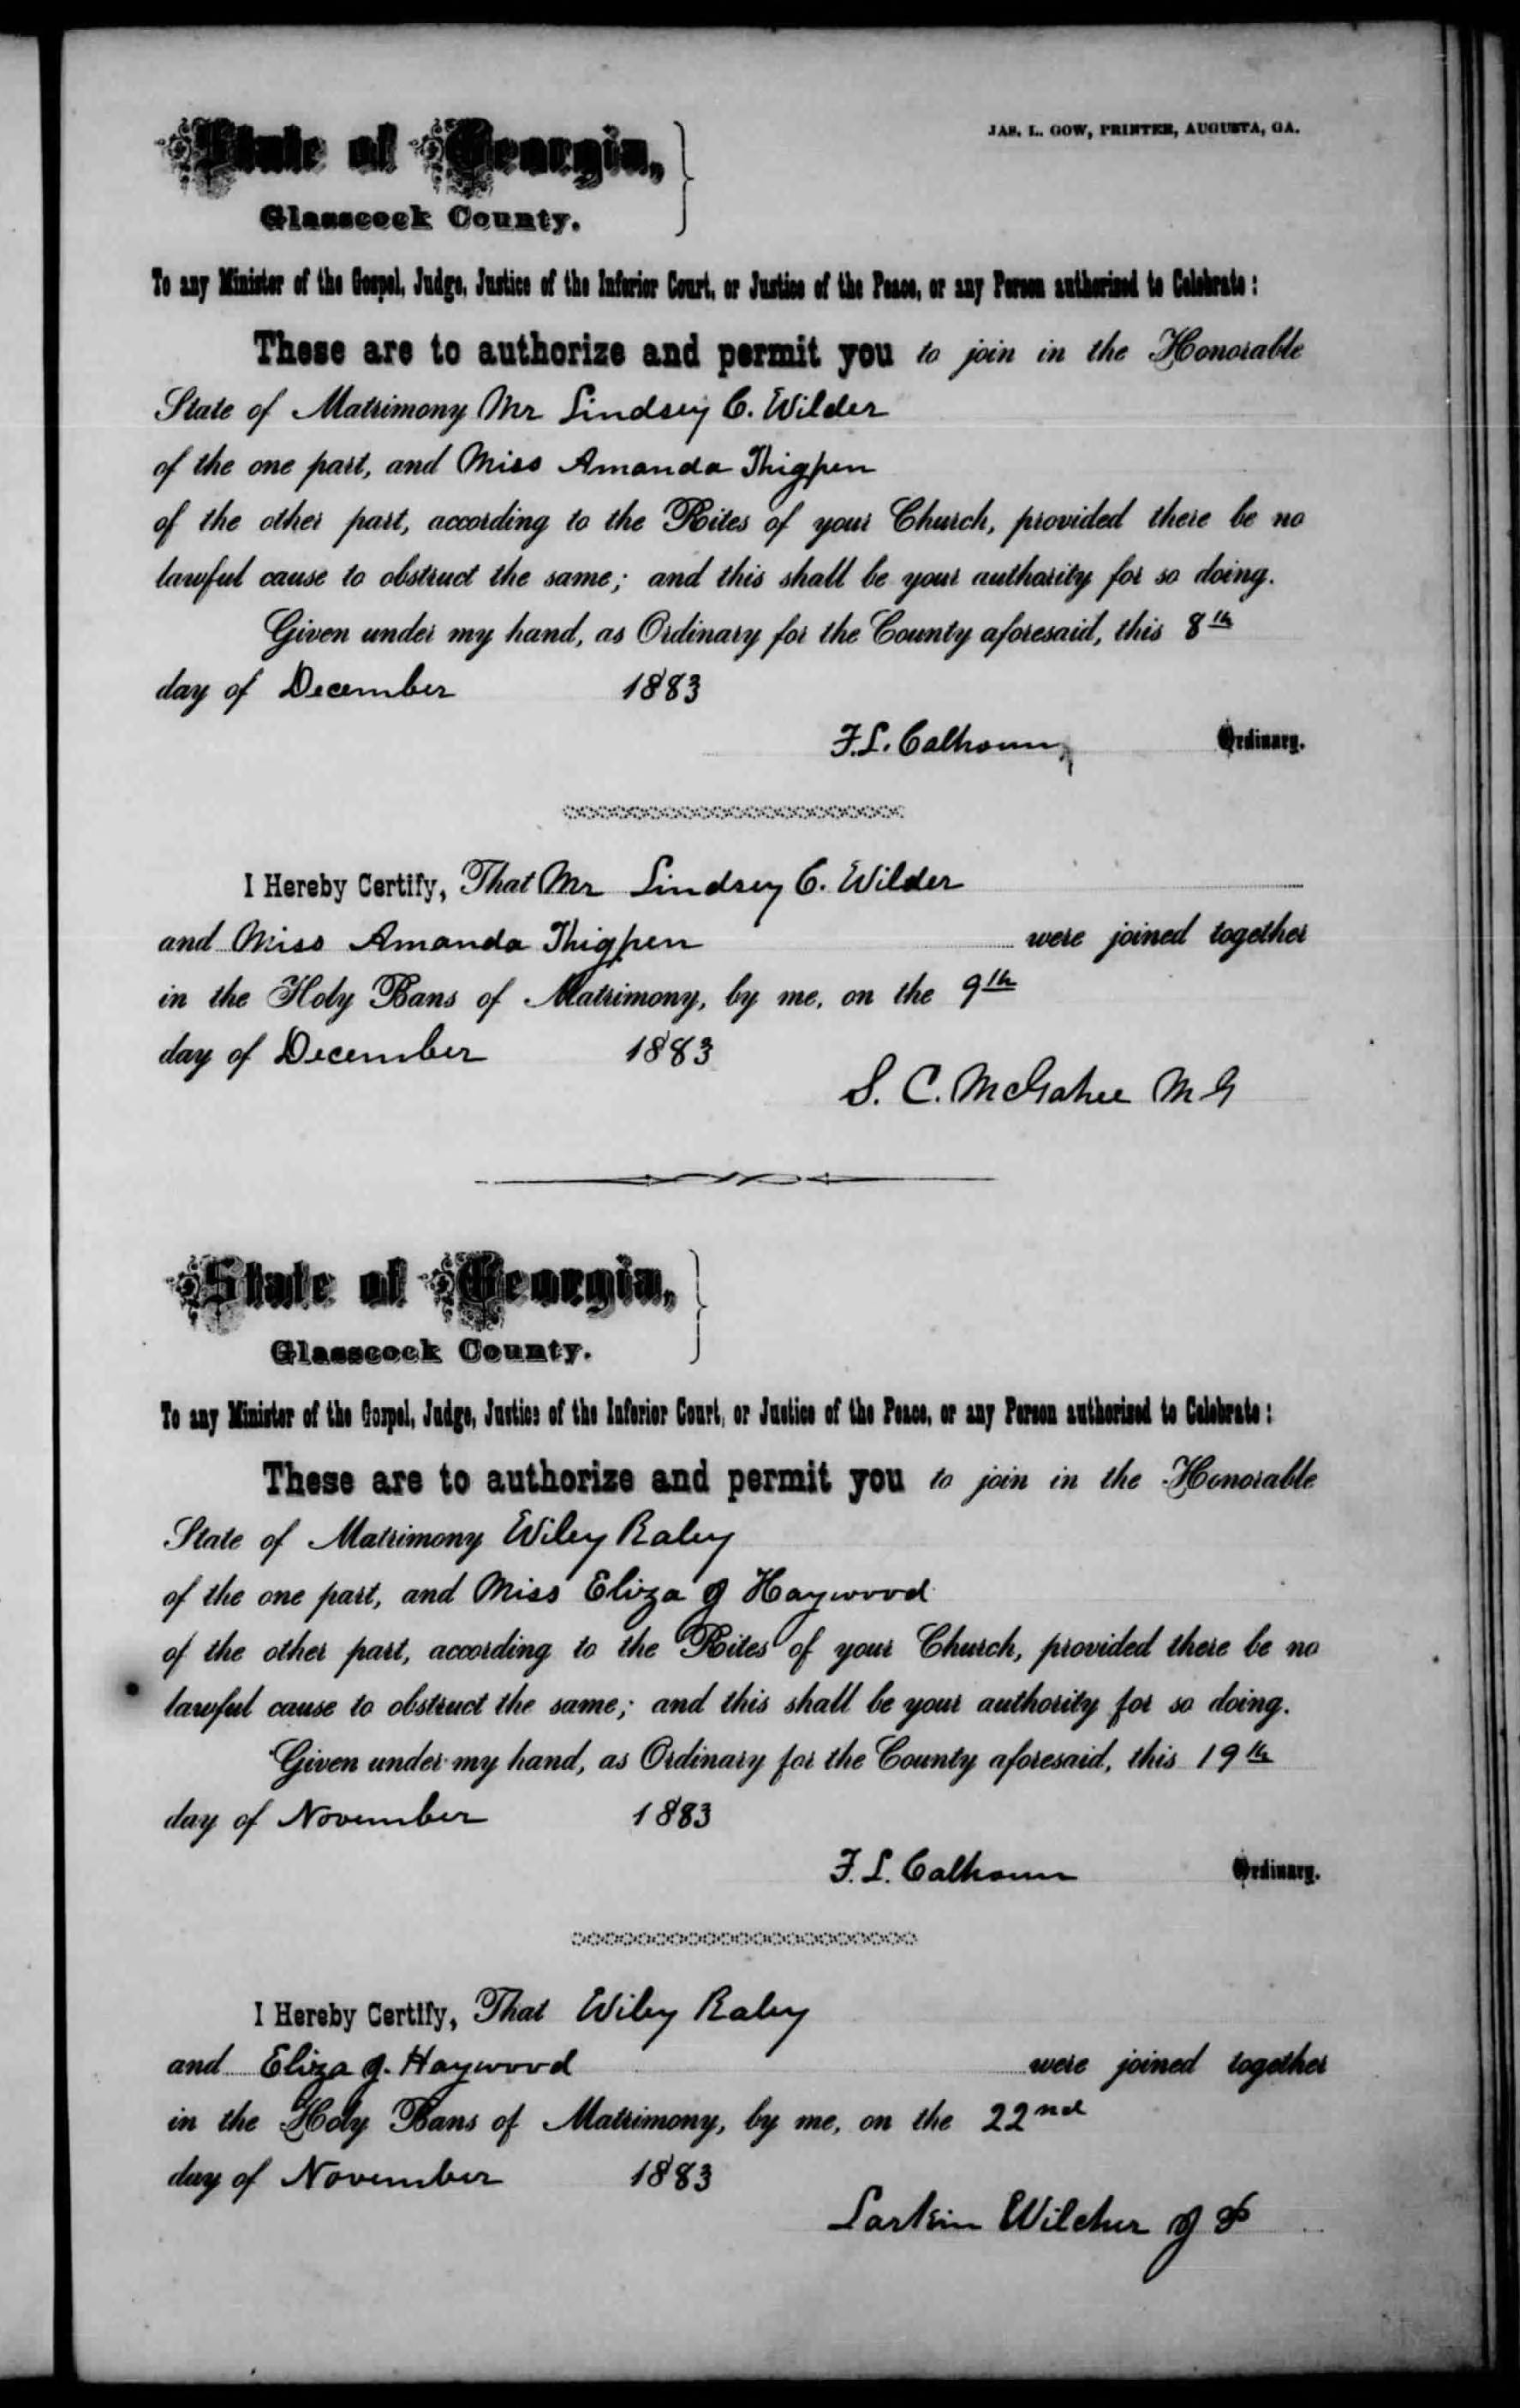 JAS. L. GOW, PRINTER, AUGUSTA, GA.
State of Georgia,
Glasscock County.
To any Minister of the Gospel, Judge, Justice of the Inferior Court, or Justice of the Peace, or any Person authorized to Celebrate:
These are to authorize and permit you to join in the Honorable
State of Matrimony Mr Lindsey C. Wilder
of the one part, and Miss Amanda Thigpen
of the other part, according to the Rites of your Church, provided there be no
lawful cause to obstruct the same; and this shall be your authority for so doing.
Given under my hand, as Ordinary for the County aforesaid, this 8th
day of December 1883
F. L. Calhoun Ordinary.
I Hereby Certify, That Mr Lindsey C. Wilder
and Miss Amanda Thigpen were joined together
in the Holy Bans of Matrimony, by me, on the 9th
day of December 1883
S. C. McGahee M G
State of Georgia,
Glasscock County.
To any Minister of the Gospel, Judge, Justice of the Inferior Court, or Justice of the Peace, or any Person authorized to Celebrate:
These are to authorize and permit you to join in the Honorable
State of Matrimony Wiley Raley
of the one part, and Miss Eliza J Haywood
of the other part, according to the Rites of your Church, provided there be no
lawful cause to obstruct the same; and this shall be your authority for so doing.
Given under my hand, as Ordinary for the County aforesaid, this 19th
day of November 1883
F. L. Calhoun Ordinary.
I Hereby Certify, That Wiley Raley
and Eliza J. Haywood were joined together
in the Holy Bans of Matrimony, by me, on the 22nd
day of November 1883
Larkin Wilcher J P